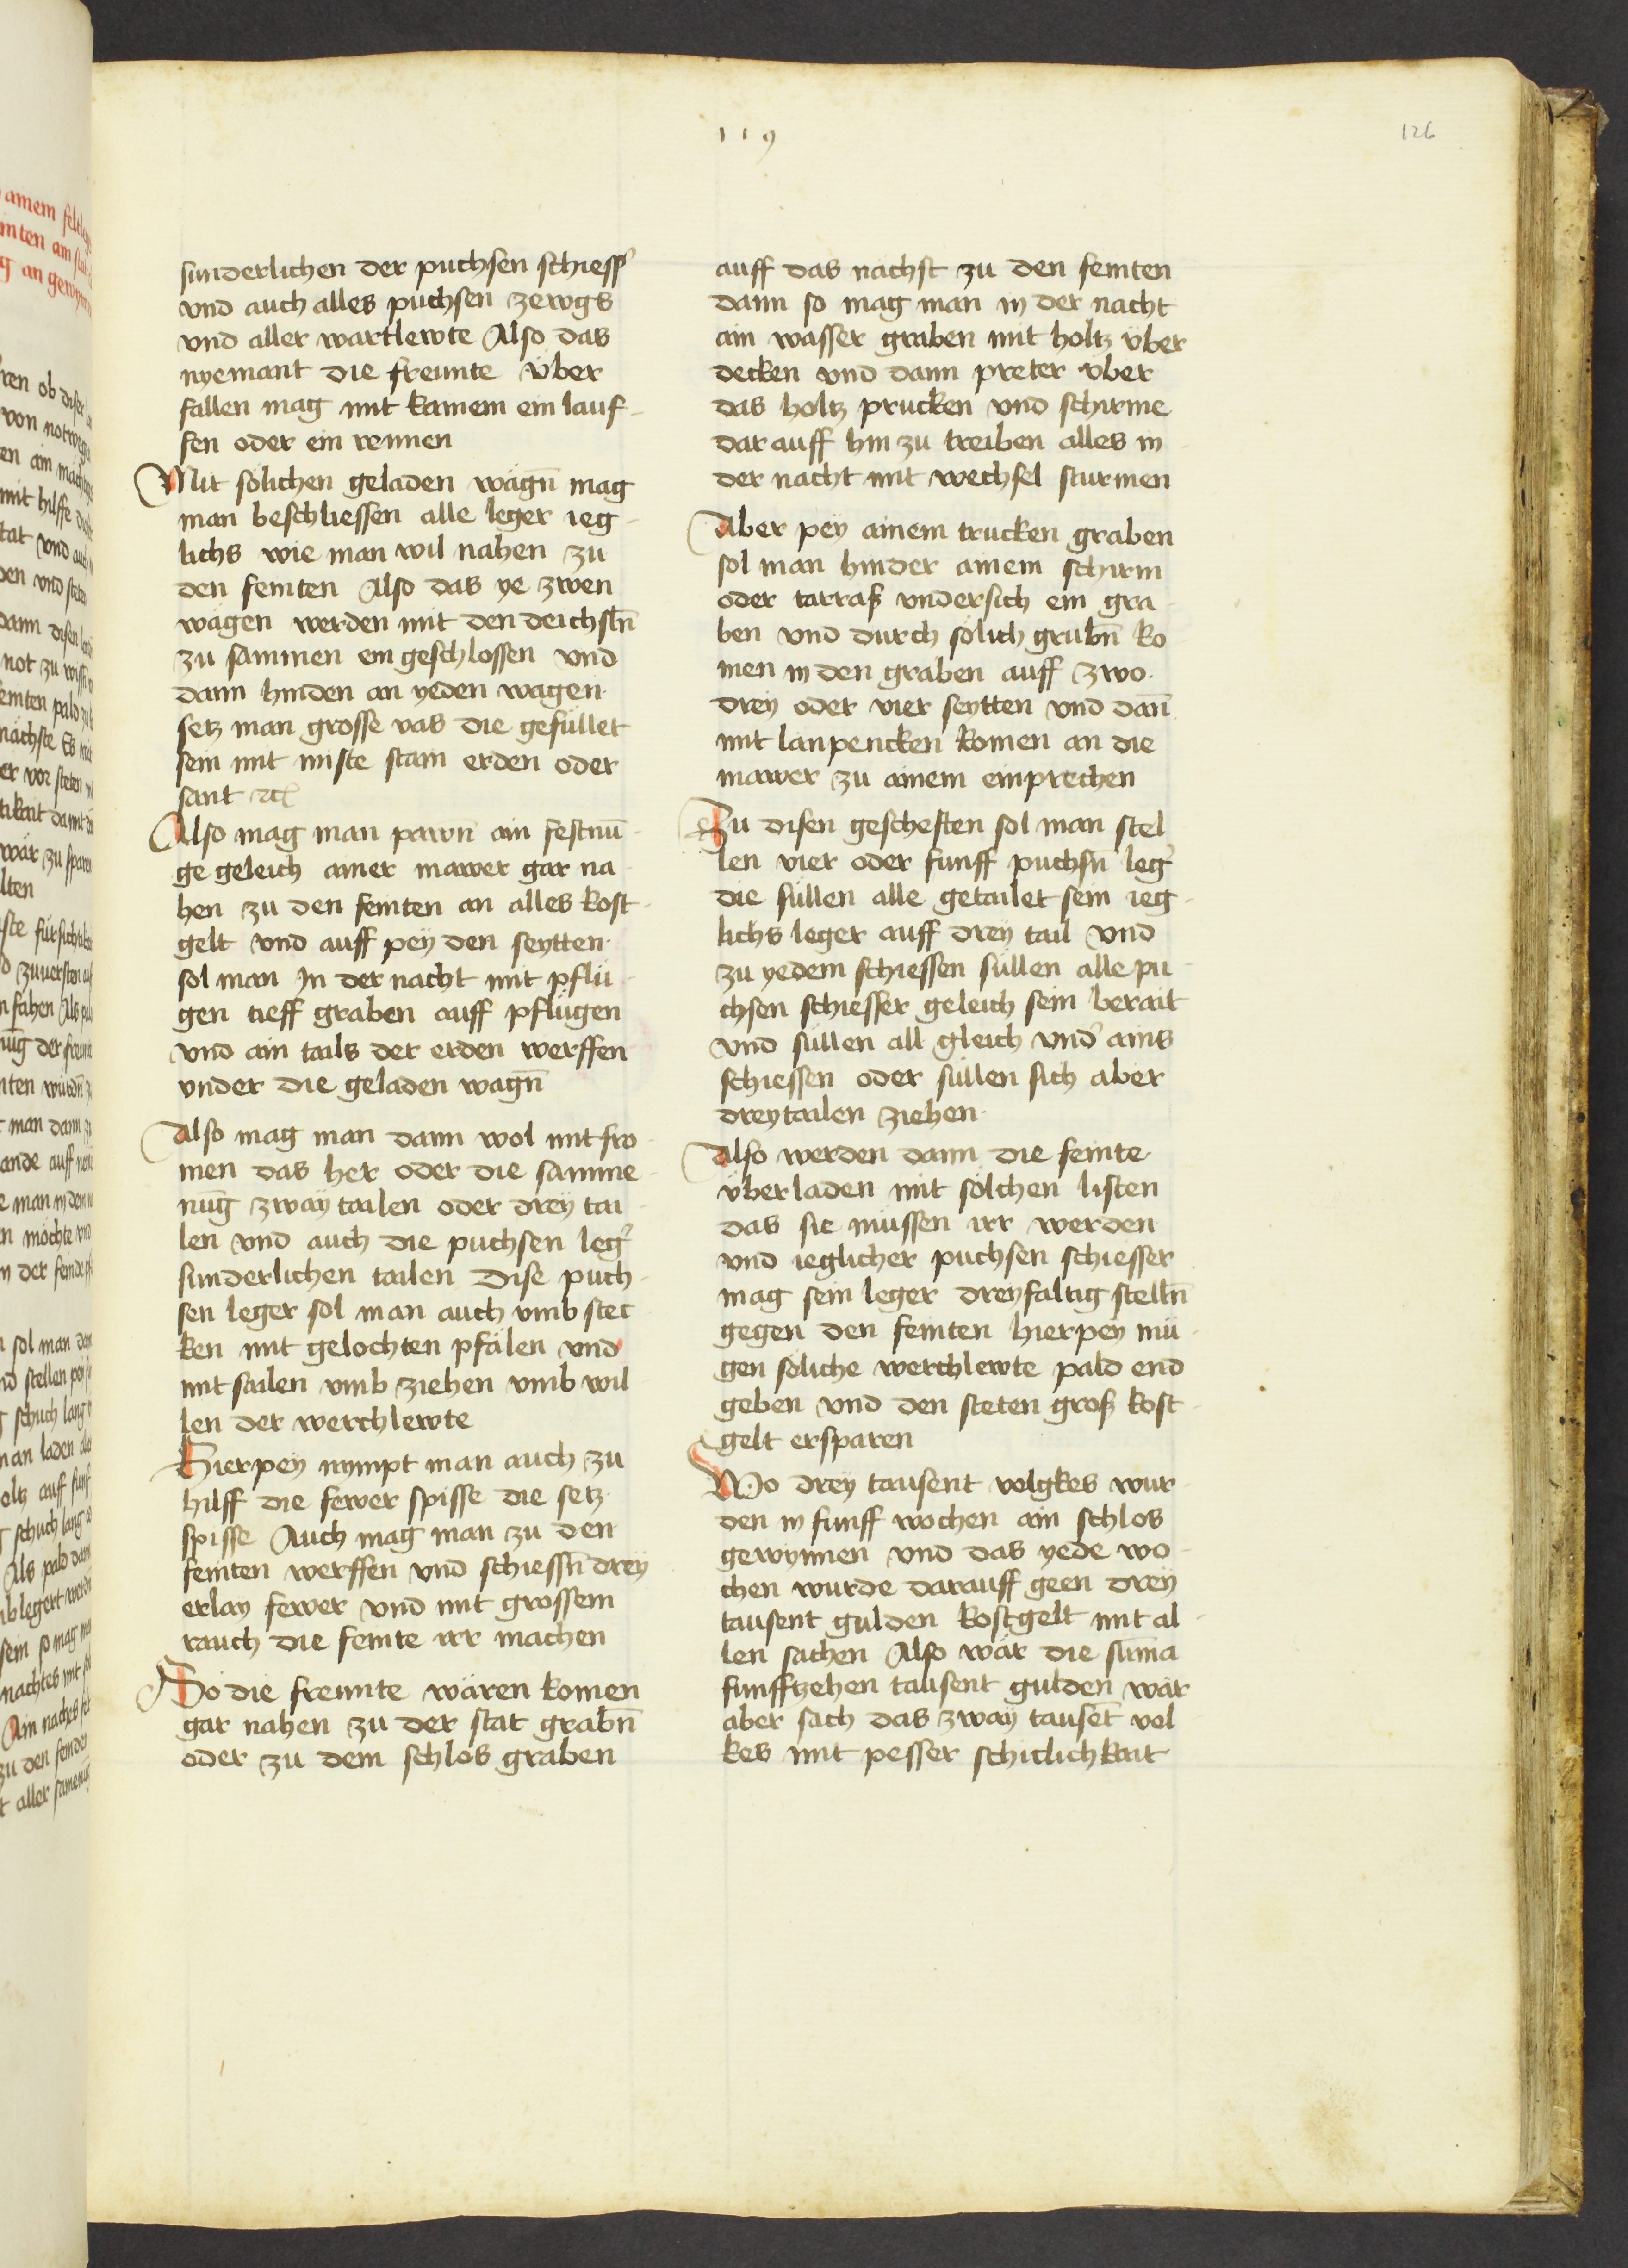 119
126
sunderlichen der puchsen schiess᷑
vnd auch alles puchsen zewgs
vnd aller wartlewte Also das
nyemant die freunte über
fallen mag mit kainem ein lauf-
fen oder ein rennen
Mit sölichen geladen wägn̄ mag
man beschliessen alle leger ieg-
lichs wie man wil nahen zu
den feinten Also das ye zwen
wägen werden mit den deichsln̄
zu sammen ein geschlossen vnd
dann hinden an yeden wagen
setz man grosse vas die gefüllet
sein mit miste stain erden oder
sant ꝛc̄
Also mag man pawn ain festnū-
ge geleich ainer mawer gar na-
hen zu den feinten an alles kost-
gelt vnd auff pey den seytten
sol man In der nacht mit pflü-
gen tieff graben auff pflügen
vnd ain tails der erden werffen
vnder die geladen wägn̄
Also mag man dann wol mit fro-
men das her oder die samme-
nūg zway tailen oder drey tai-
len vnd auch die puchsen leg᷑
sunderlichen tailen Dise puch-
sen leger sol man auch vmb stec
ken mit gelochten pfälen vnd
mit sailen vmb ziehen vmb wil-
len der werchlewte
Hierpey nympt man auch zu
hilff die fewer spisse die setz
spisse Auch mag man zu den
feinten werffen vnd schiessn̄ drey
erlay fewer vnd mit grossem
rauch die feinte irr machen
So die freunte wären komen
gar nahen zu der stat grabn̄
oder zu dem schlos graben
auff das nachst zu den feinten
dann so mag man in der nacht
ain wasser graben mit holtz über
decken vnd dann preter über
das holtz prucken vnd schirme
dar auff hin zu treiben alles in
der nacht mit wechsel sturmen
Aber pey ainem trucken graben
sol man hinder ainem schirm
oder tarraß vndersich ein gra-
ben vnd durch sölich grubn̄ ko
men in den graben auff zwo
drey oder vier seytten vnd dan̄
mit lanpencken komen an die
mawer zu ainem einprechen
Zu disen geschefften sol man stel
len vier oder funff puchsn̄ leg᷑
die süllen alle getailet sein ieg-
lichs leger auff drey tail vnd
zu yedem schiessen süllen alle pu-
chsen schiesser geleich sein berait
vnd süllen all gleich vnd᷑ ains
schiessen oder süllen sich aber
dreytailen ziehen
Also werden dann die feinte
überladen mit sölchen listen
das sie müssen irr werden
vnd ieglicher puchsen schiesser
mag sein leger dreyfaltig stelln̄
gegen den feinten hierpey mü-
gen söliche werchlewte pald end
geben vnd den steten groß kost-
gelt ersparen
Wo drey tausent volgkes wur-
den in funff wochen ain schlos
gewynnen vnd das yede wo-
chen wurde darauff geen drey
tausent gulden kostgelt mit al-
len sachen Also wär die sūma
funffzehen tausent gulden wär
aber sach das zway tausēt vol
kes mit pesser schicklichkait